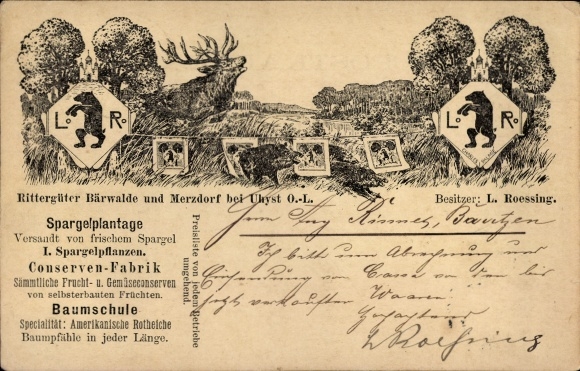 L. R.
L. R.
Rittergüter Bärwalde und Merzdorf bei Uhyst O.-L.
Besitzer: L. Roessing.
Spargelplantage
Versandt von frischem Spargel
I. Spargelpflanzen.
Conserven-Fabrik
Sämmtliche Frucht- u. Gemüseconserven
von selbsterbauten Früchten.
Baumschule
Specialität: Amerikanische Rotheiche
Baumpfähle in jeder Länge.
Preisliste von jedem Betriebe
umgehend.
Herrn Aug Bautzen
Ich bitte um Abrechnung und
Einsendung von Cassa von den bis
jetzt verkauften Waaren
L Roessing